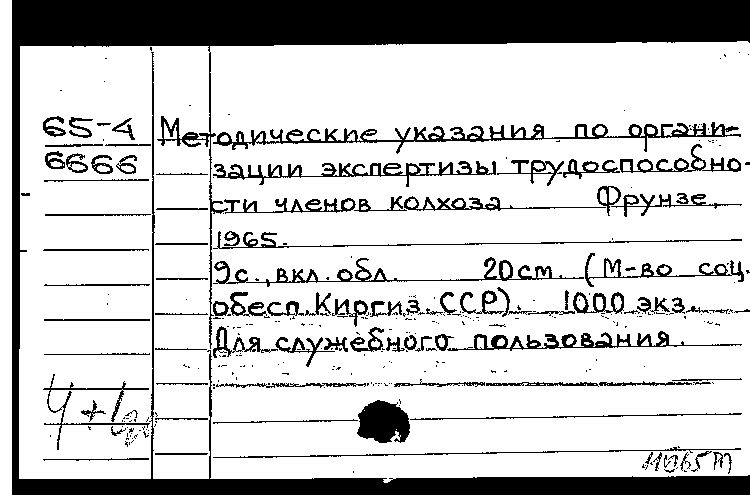 65-4
6666
Методические указания по органи-
зации экспертизы трудоспособно-
сти членов колхоза. Фрунзе,
1965.
9с., вкл. обл. 20см. (М-во соц.
обесп. Киргиз. ССР). 1000 экз.
Для служебного пользования.